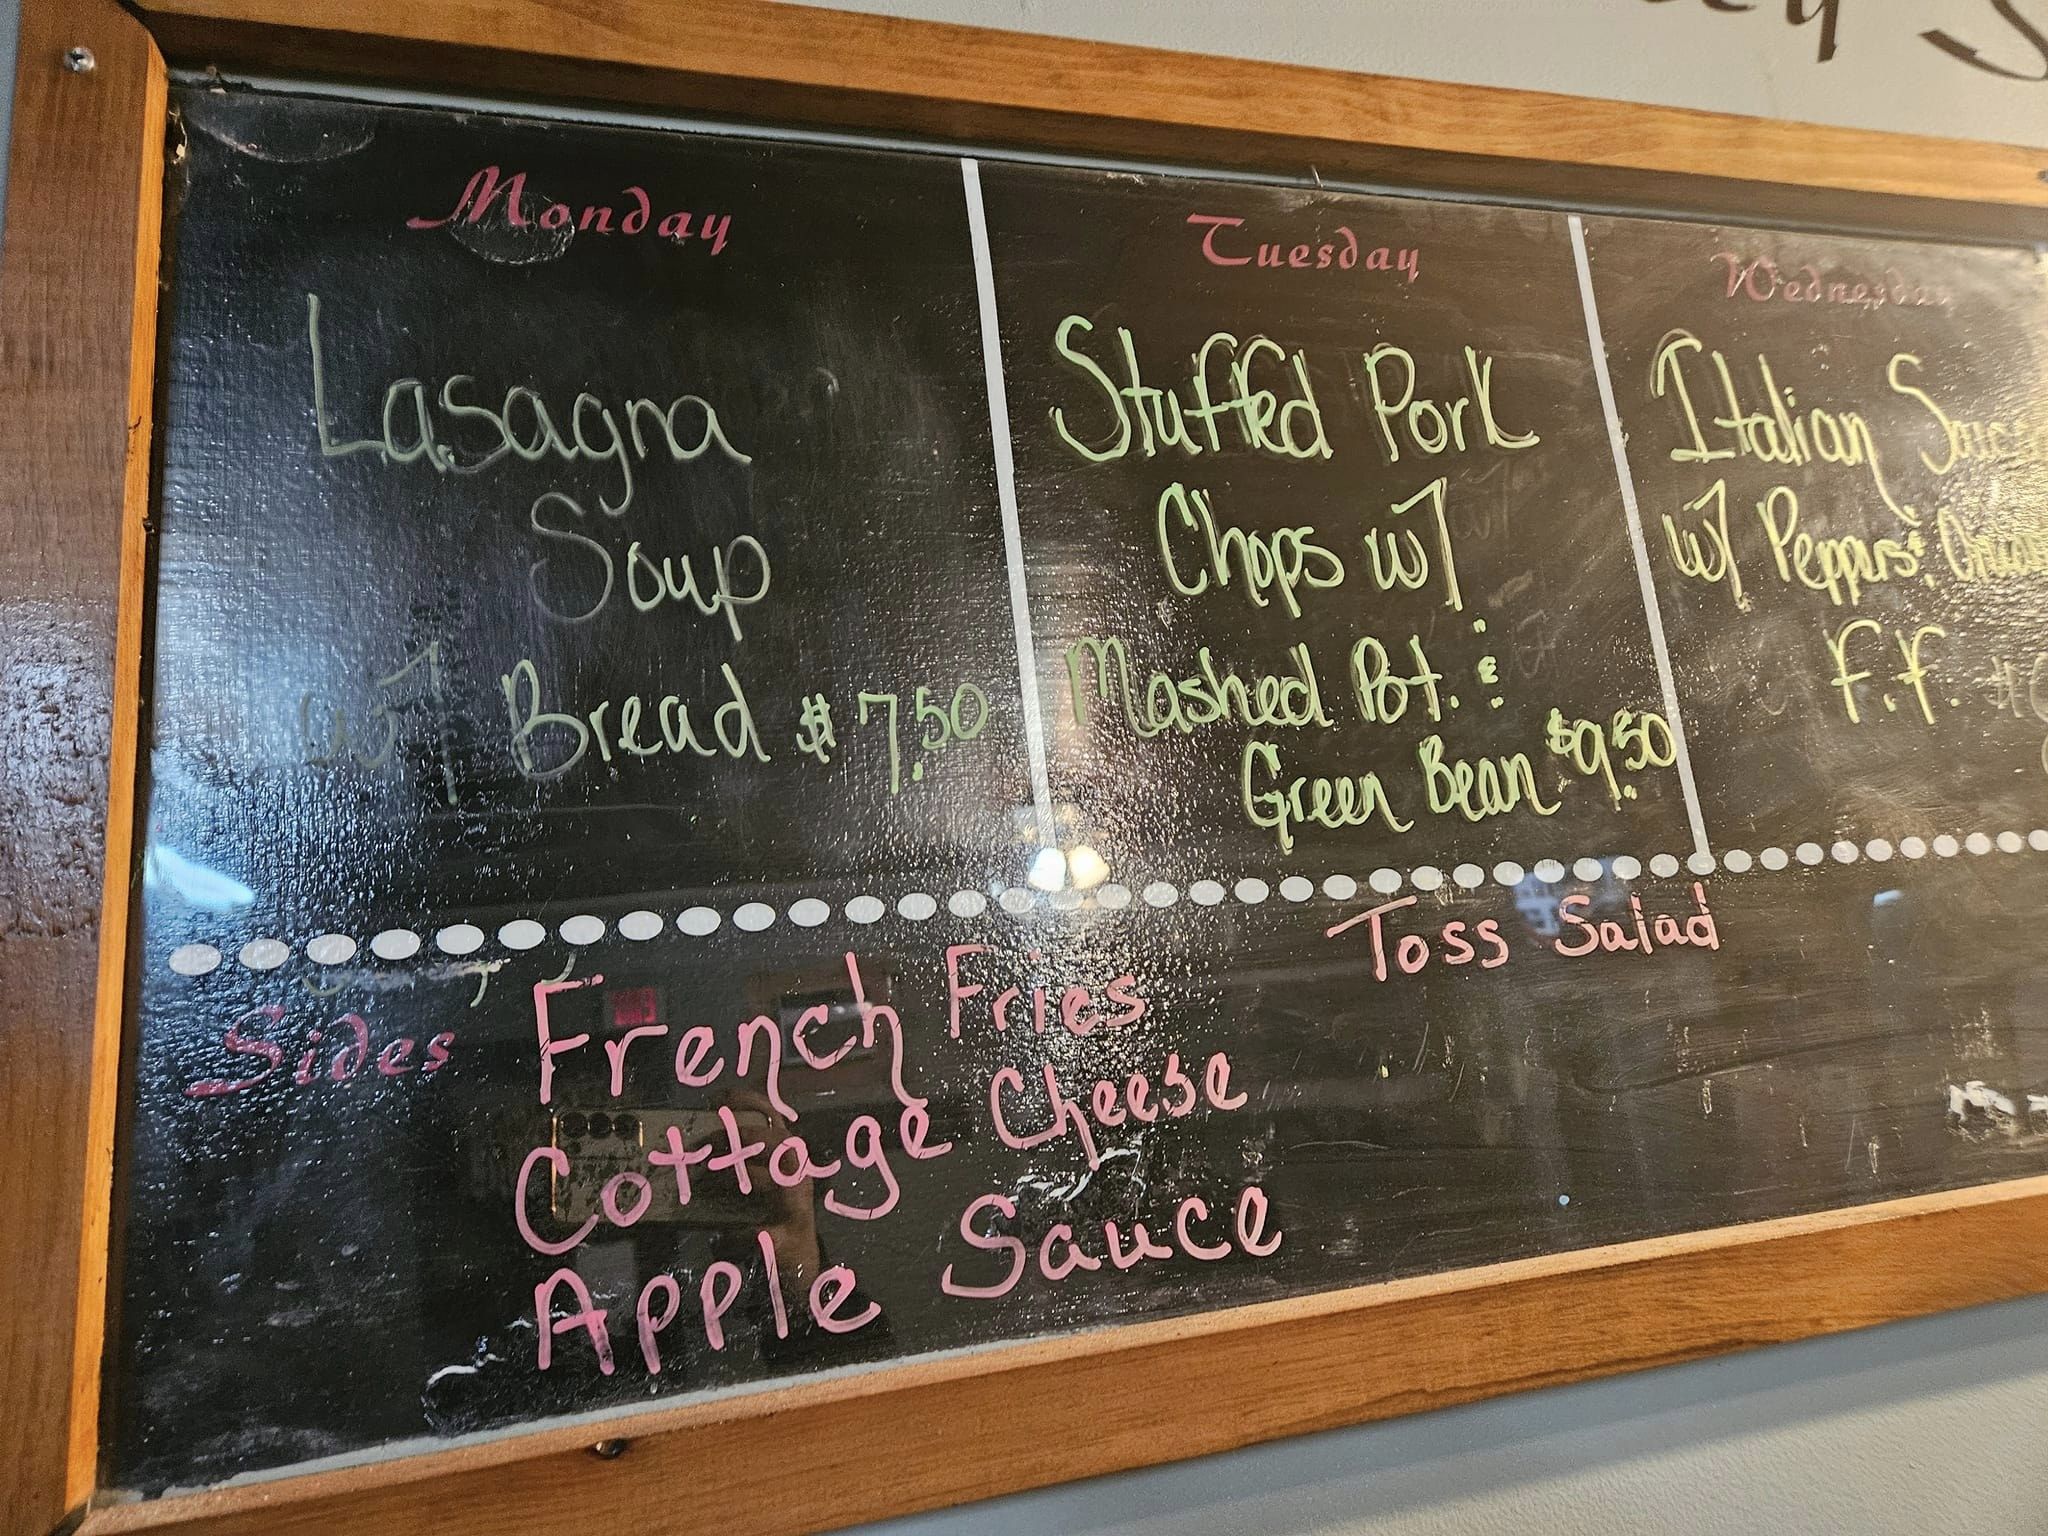 Monday
Lasagna
Soup
w/ Bread $7.50
Tuesday
Stuffed Pork
Chops w/
Mashed Pot. &
Green Bean $9.50
Wednesday
Italian
w/ Peppers &
F.F.
Sides
French Fries
Cottage Cheese
Apple Sauce
Toss Salad